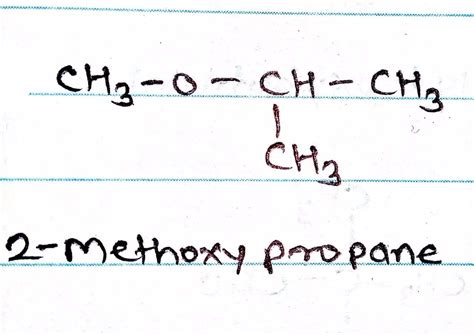 CH3-O-CH-CH3
|
CH3
2-Methoxy propane